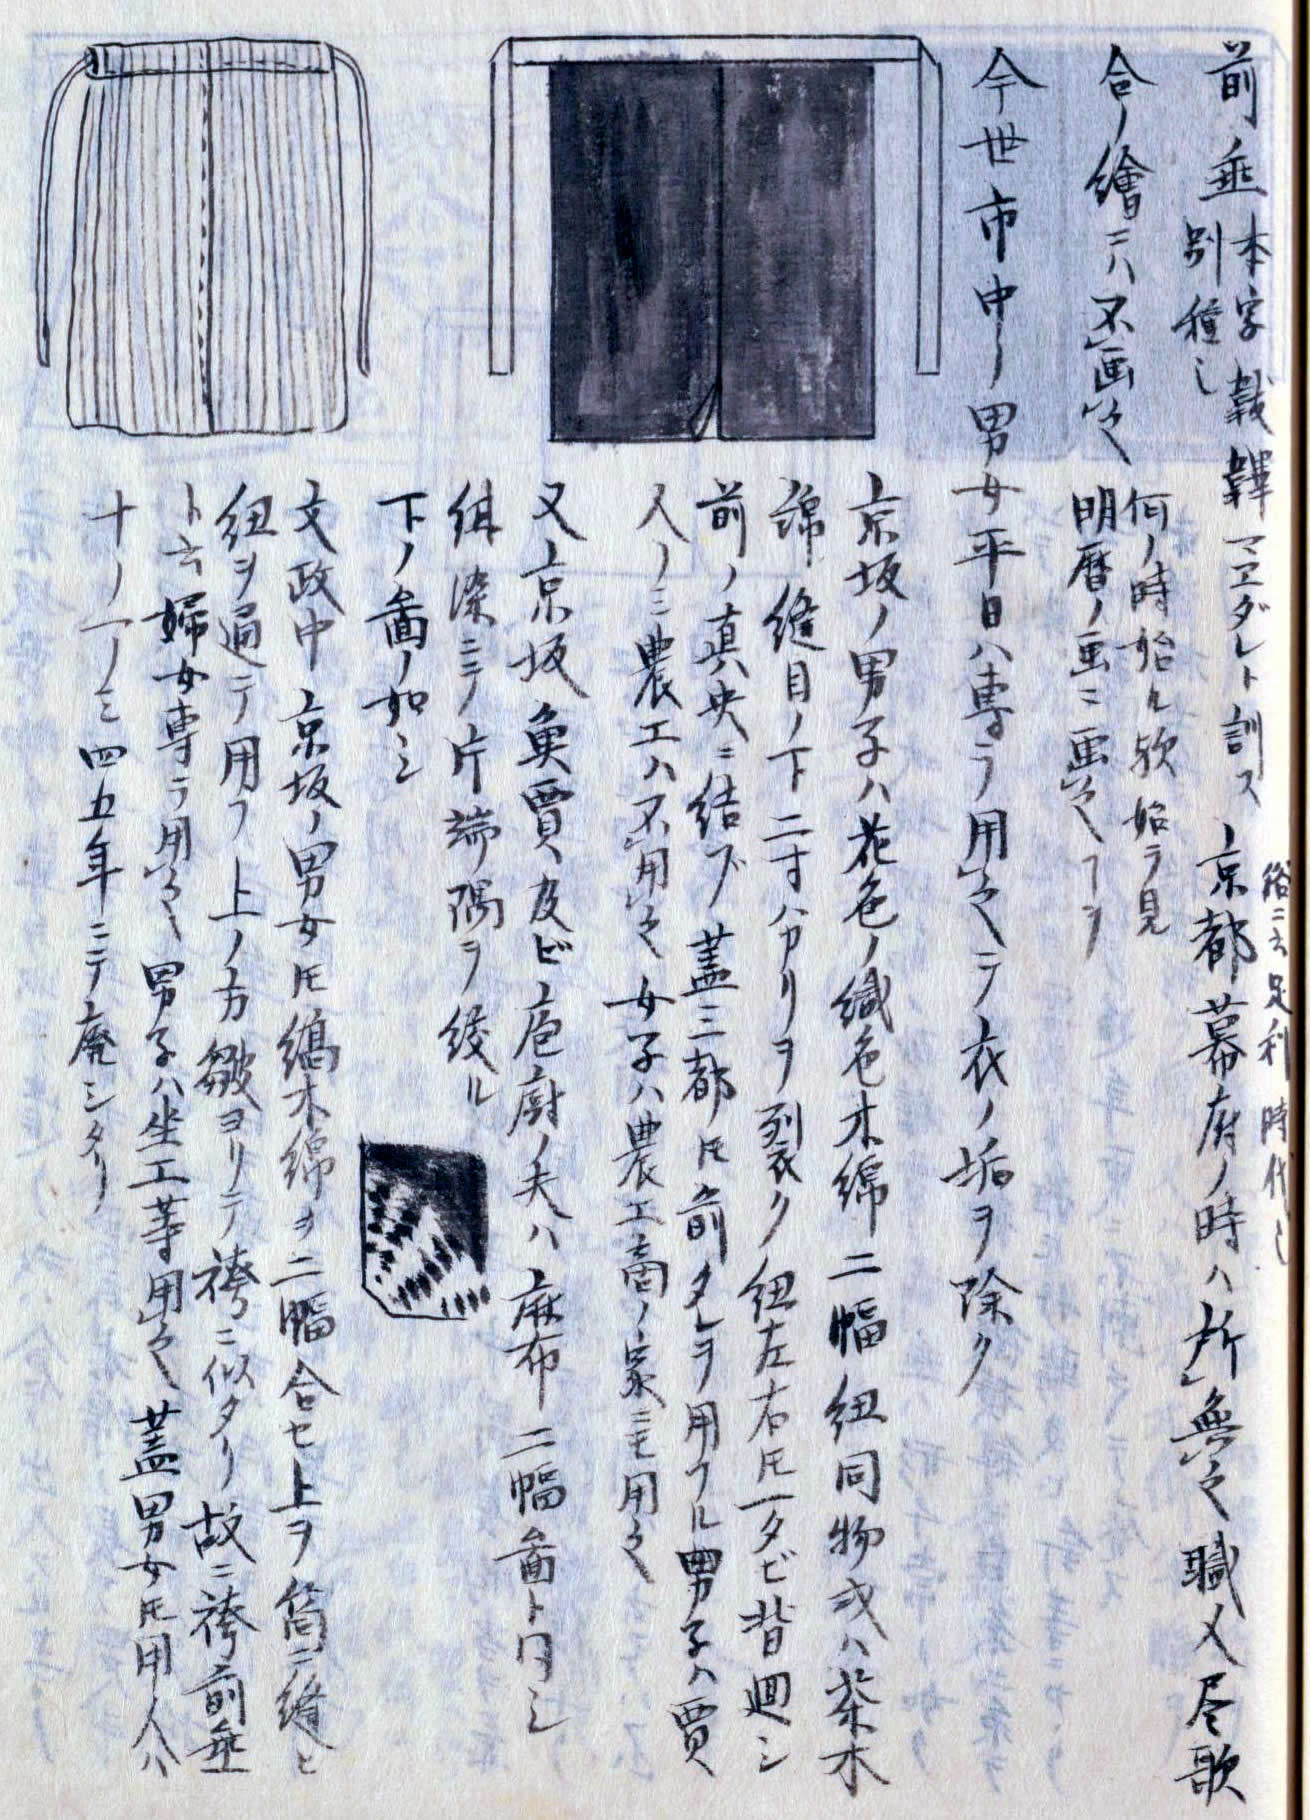 前垂 本字韍韠マエダレト訓ス 京都幕府ノ時ハ所無之職人尽歌
別種也
俗ニ云足利時代也
合ノ繪ニハ不画之 何ノ時始ル欤始ラ見
明暦ノ画ニ画之ヿヲ
今世市中ノ男女平日ハ専ラ用之テ衣ノ垢ヲ除ク
京坂ノ男子ハ花色ノ織色木綿二幅紐同物或ハ茶木
綿縫目ノ下二寸ハカリヲ裂ク紐左右トモ一タビ背廻シ
前ノ真央ニ結ブ蓋三都トモ前タレヲ用フル男子ハ賈
人ノミ農工ハ不用之女子ハ農工商ノ家ニモ用之
又京坂魚賈及ビ庖厨ノ夫ハ麻布二幅啚ト同シ
紺染ニテ片端隅ヲ絞ル
下ノ啚ノ如シ
文政中京坂ノ男女トモ縞木綿ヲ二幅合セ上ヲ筒ニ縫ヒ
紐ヲ通テ用フ上ノ方皺ヨリテ袴ニ似タリ故ニ袴前垂
ト云婦女専ラ用之男子ハ坐工等用之蓋男女トモ用人ハ
十ノ一ノミ四五年ニテ廃シタリ